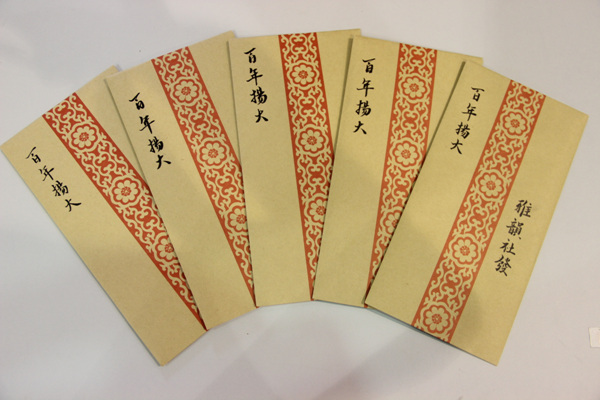 百年揚大
百年揚大
百年揚大
百年揚大
百年揚大
雅韻社發